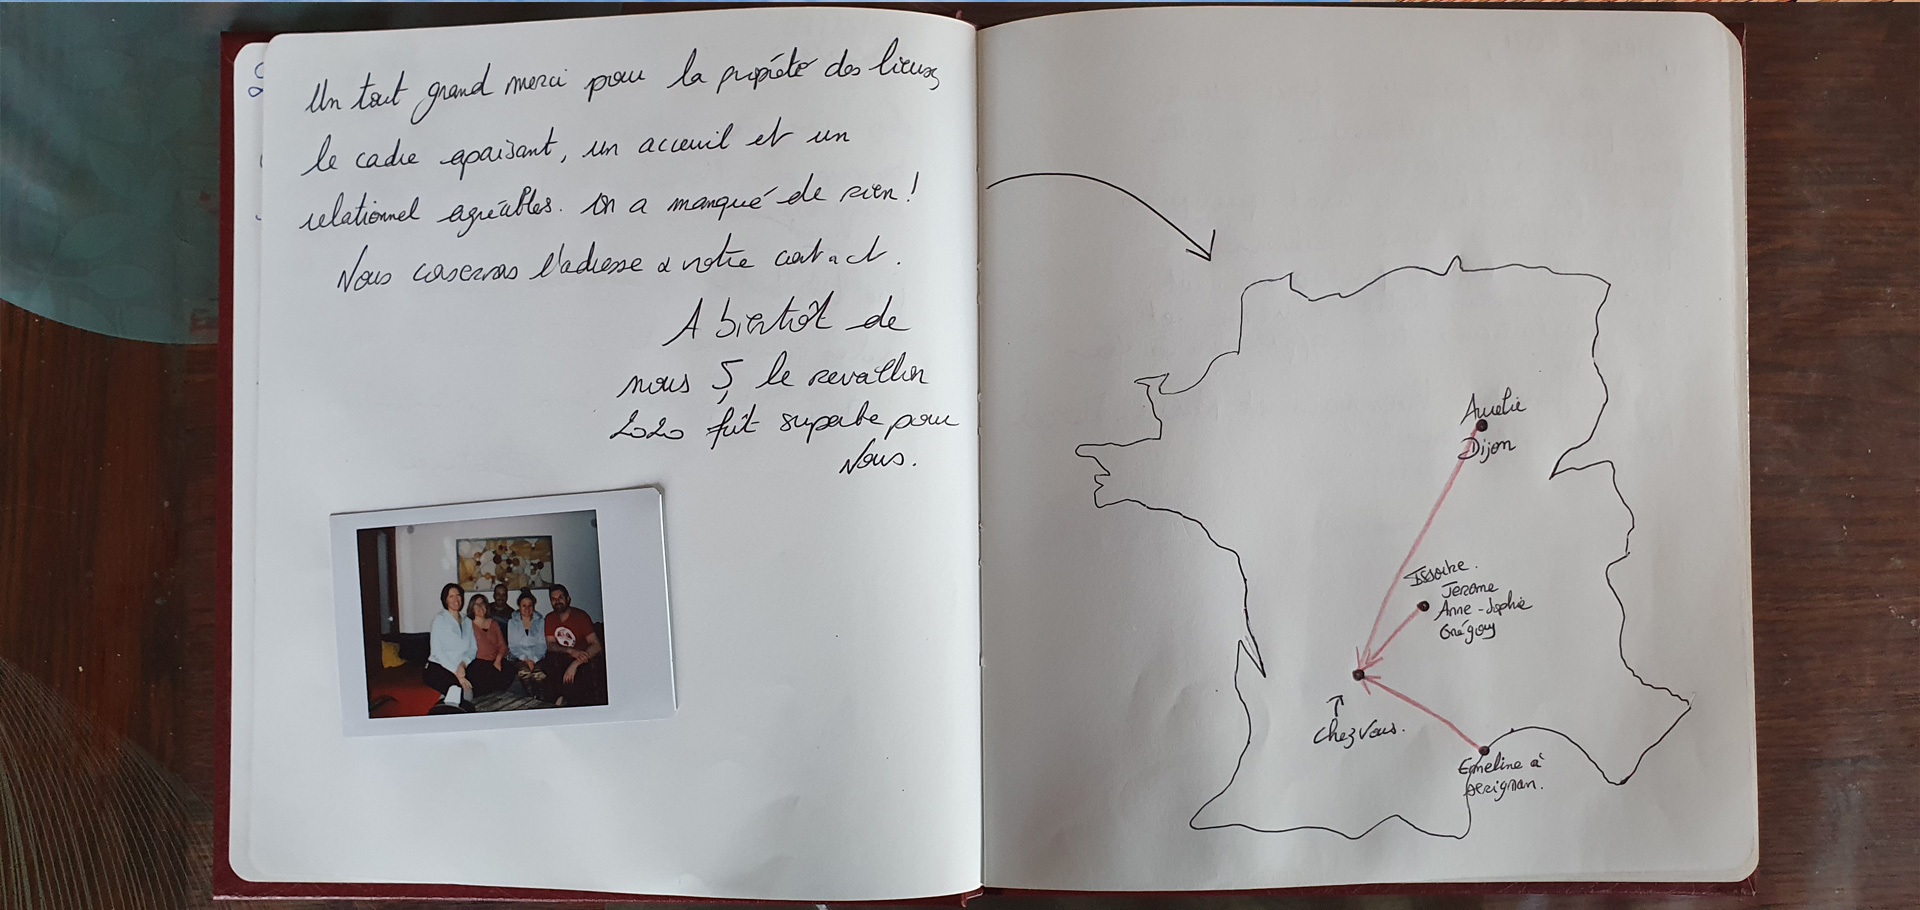 Un tout grand merci pour la propiété des lieux,
le cadre apaisant, un acceuil et un
relationnel agréables. On a manqué de rien !
Nous conservons l'adresse & votre contact.
A bientôt de
nous 5, le revaillon
2020 fût superbe pour
Nous.
Amelie
Dijon
Issoire.
Jerome
Anne-Sophie
Grégory
chez vous.
Emeline à
Serignan.